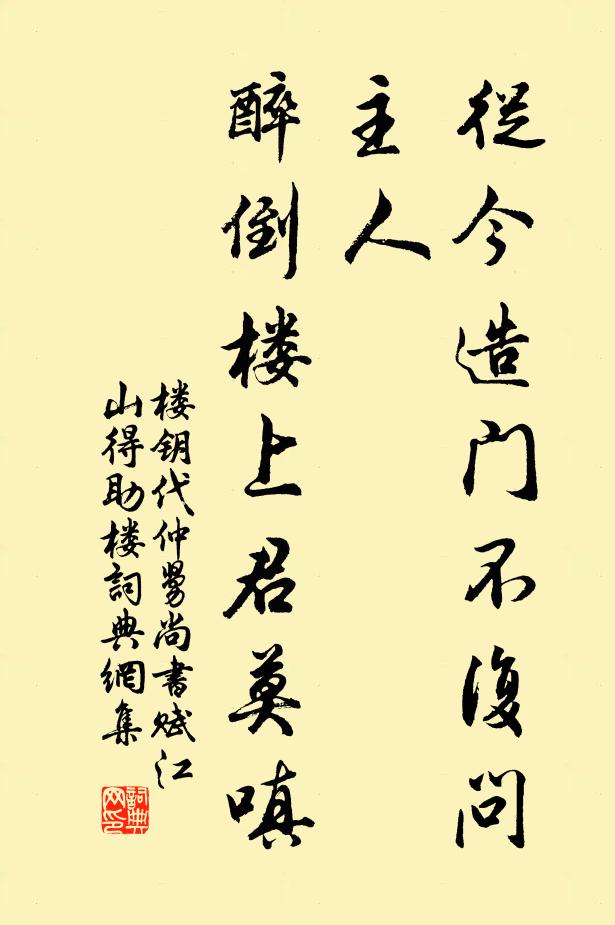 從今造門不復問
主人
醉倒楼上君莫嗔
楼钥代仲舅尚書赋江
山得助楼詞典網集
詞典
网印